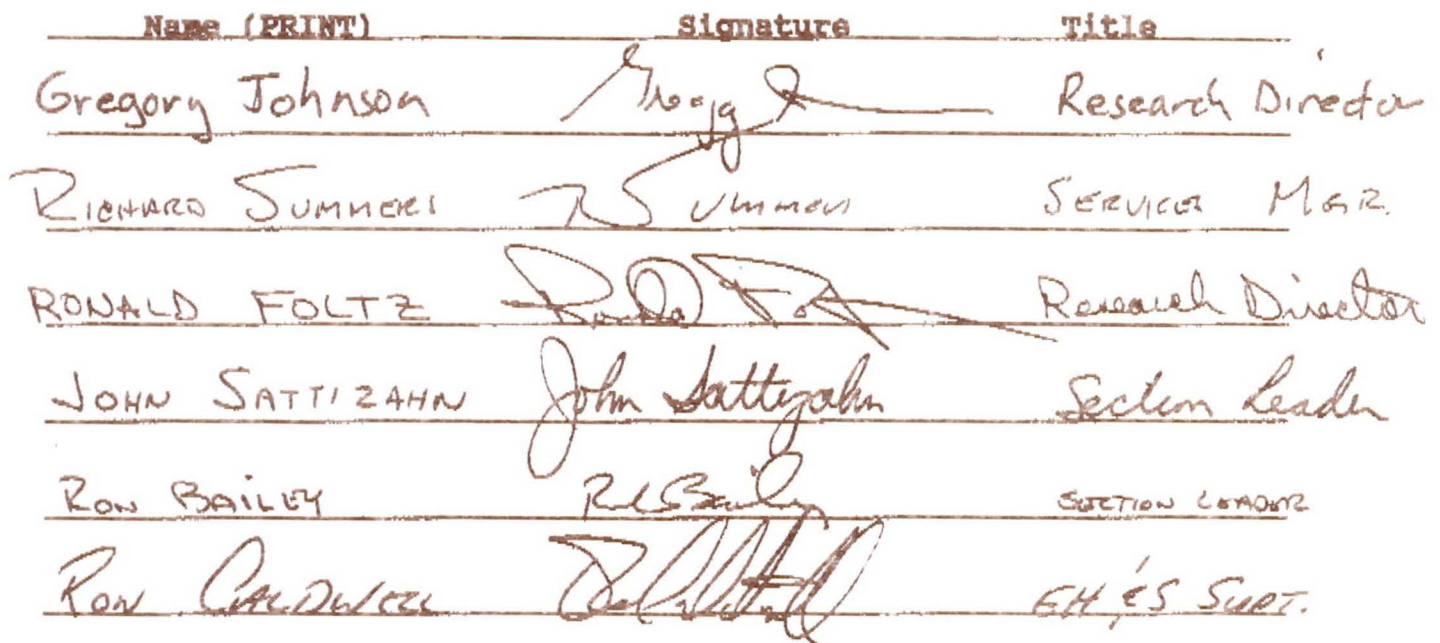 Name (PRINT) Signature Title
Gregory Johnson Gregg J Research Director
RICHARD SUMMERS R Summers SERVICES MGR.
RONALD FOLTZ Ronald Foltz Research Director
JOHN SATTIZAHN John Sattizahn Section Leader
RON BAILEY Ron Bailey SECTION LEADER
RON CALDWELL EH &S SUPT.